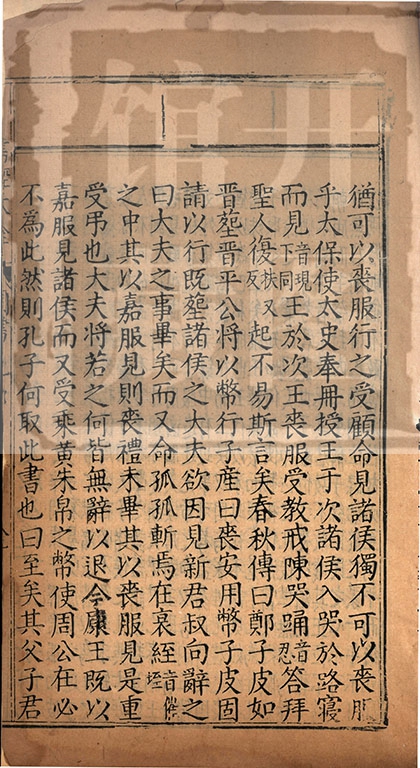 猶可以喪服行之受顧命見諸侯獨不可以喪服
乎太保使太史奉冊授王于次諸侯入哭於路寢
而見音現下同王於次王喪服受教戒陳哭踊音忍答拜
聖人復扶又反起不易斯言矣春秋傳曰鄭子皮如
晋塟晋平公將以幣行子産曰喪安用幣子皮固
請以行既塟諸侯之大夫欲因見新君叔向辭之
曰大夫之事畢矣而又命孤孤斬焉在衰絰音催姪
之中其以嘉服見則喪禮未畢其以喪服見是重
受弔也大夫將若之何皆無辭以退今康王既以
嘉服見諸侯而又受乘黃朱帛之幣使周公在必
不為此然則孔子何取此書也曰至矣其父子君